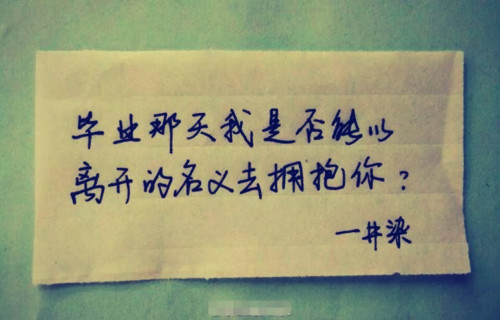 毕业那天我是否能以
离开的名义去拥抱你？
一井染